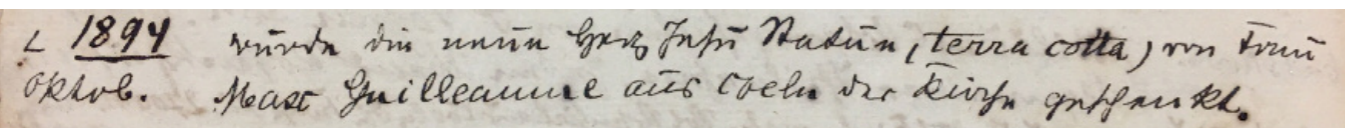 L 1894 wurde die neue Herz Jesu Statue, (terra cotta) von Frau
Oktob. Max Guilleaume aus Coeln der Kirche geschenkt.